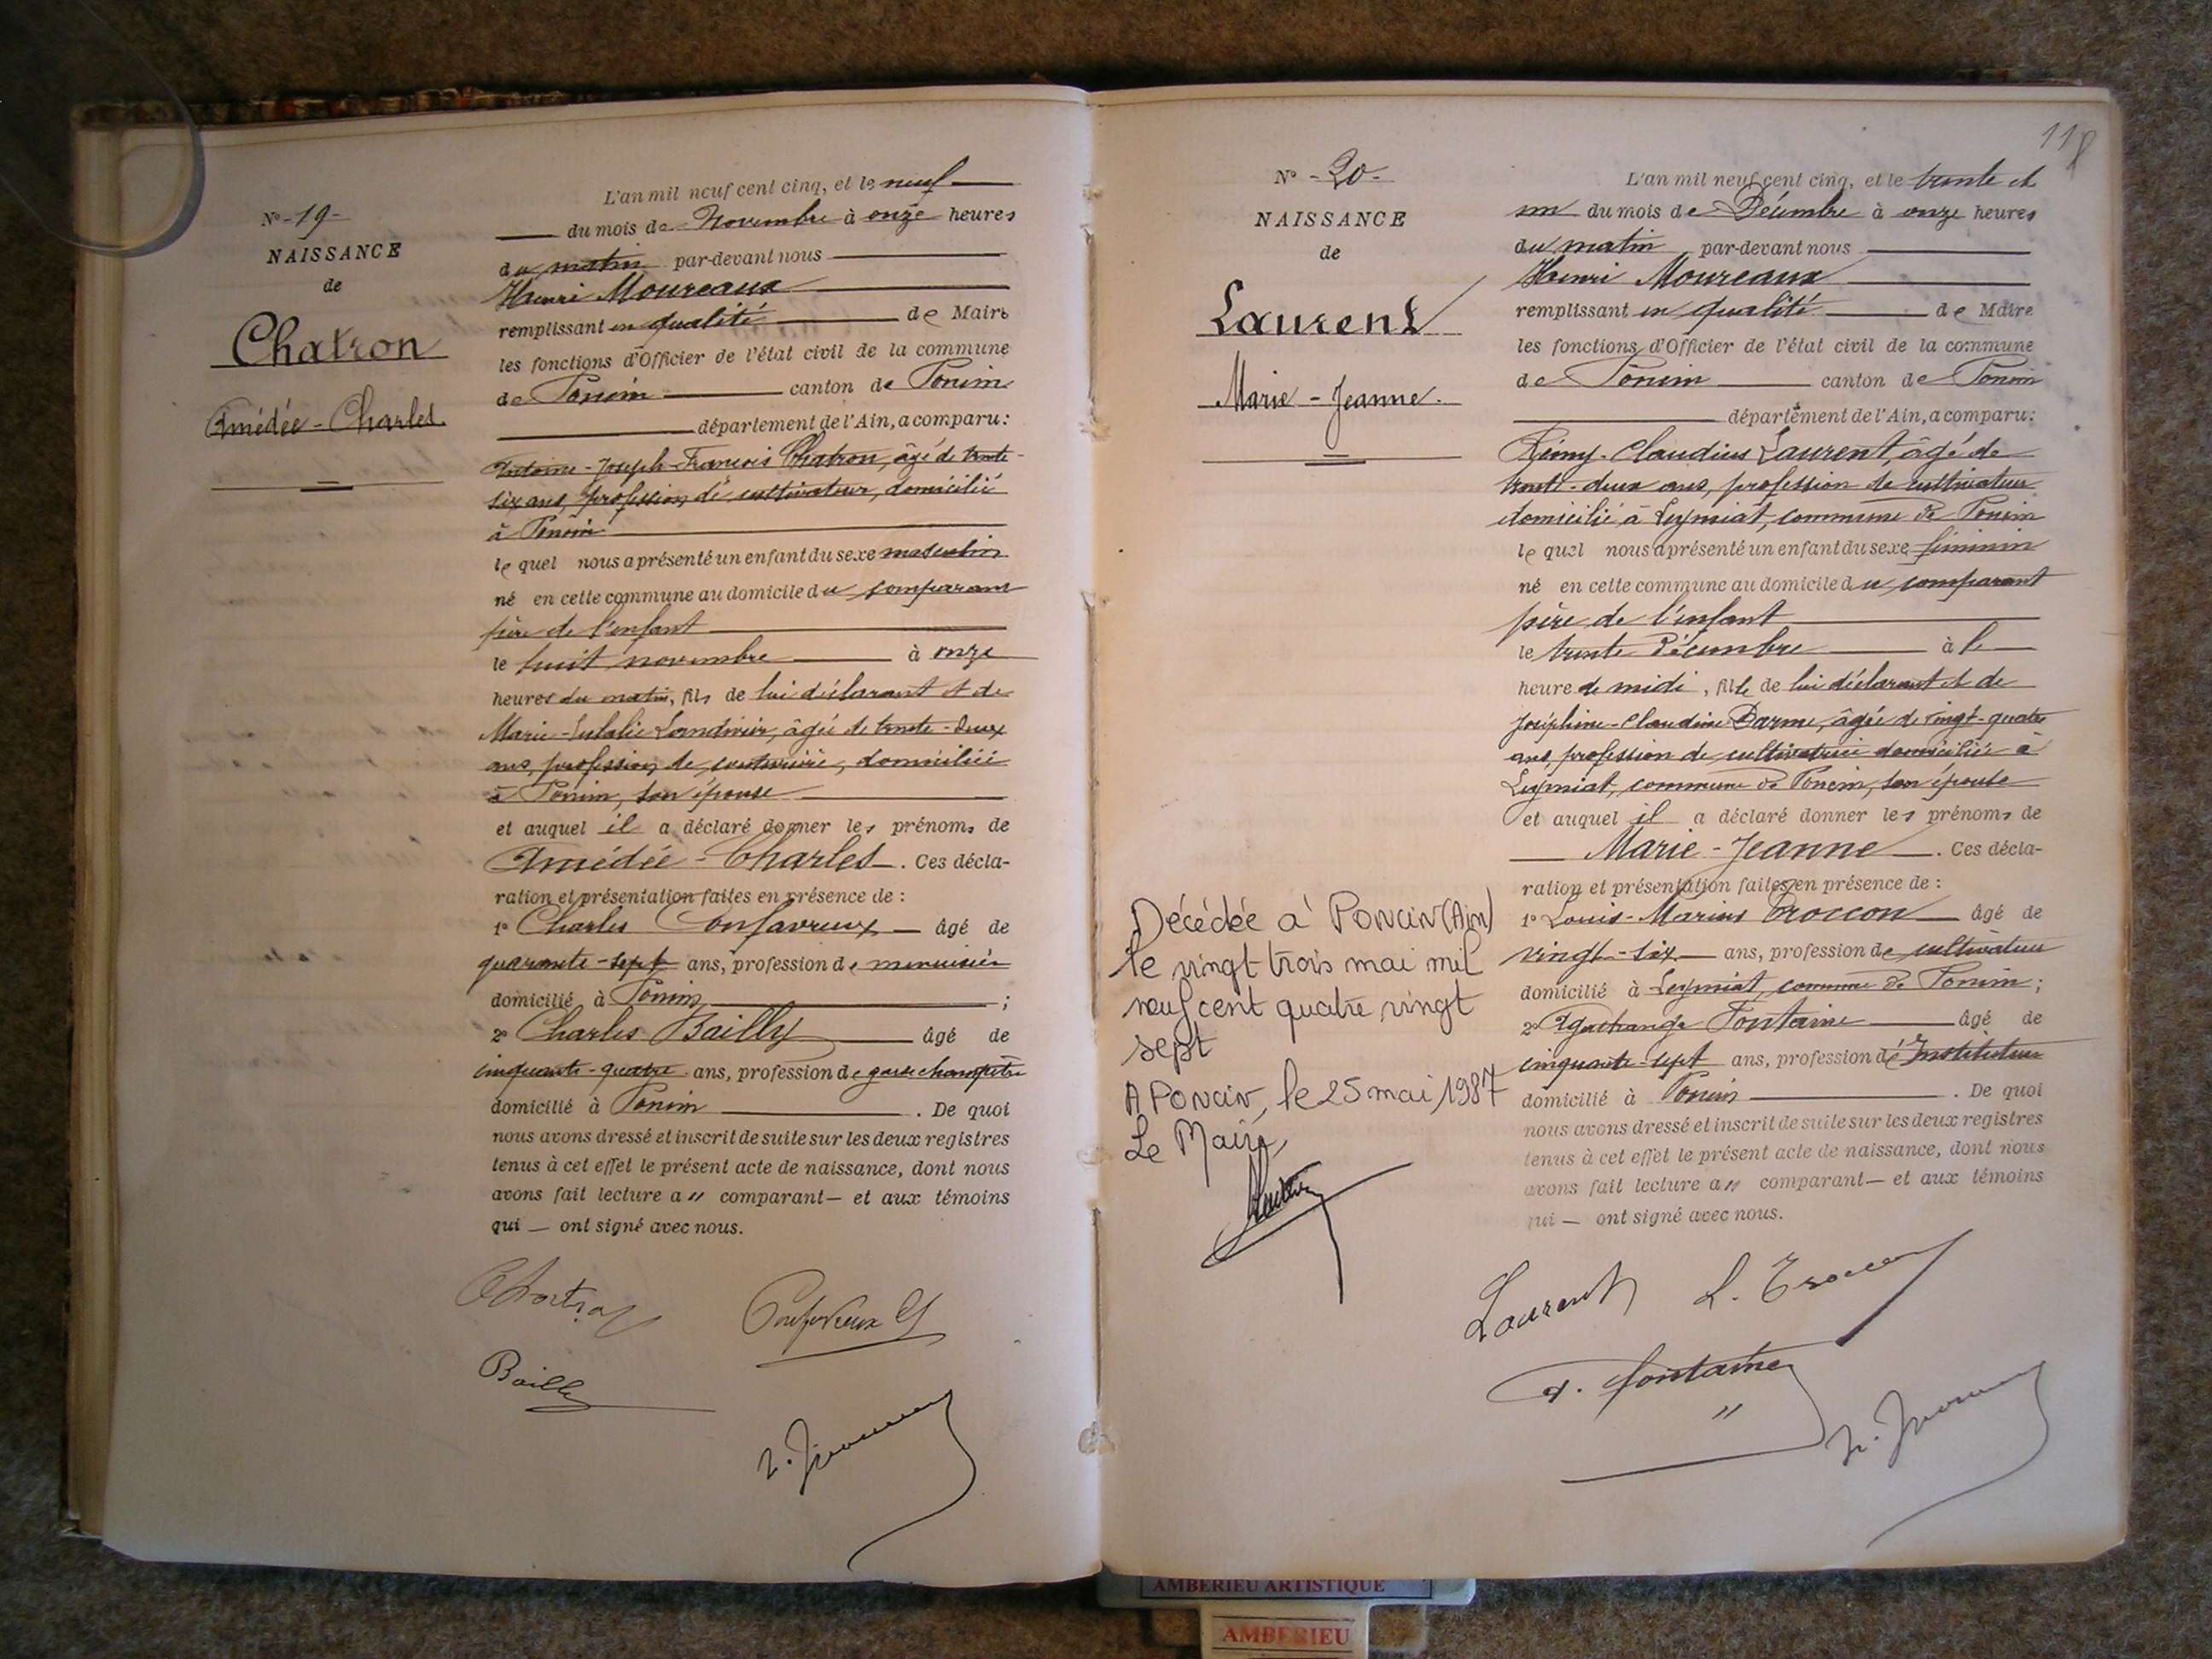 N° -19-
NAISSANCE
de
Chatron
Amédée - Charles.
L'an mil neuf cent cinq, et le neuf
du mois de Novembre à onze heures
du matin par-devant nous
Henri Moureaux
remplissant en qualité de Maire
les fonctions d'Officier de l'état civil de la commune
de Poncin canton de Poncin
département de l'Ain, a comparu:
Antoine-Joseph-François Chatron, âgé de trente-
six ans, profession de cultivateur, domicilié
à Poncin
le quel nous a présenté un enfant du sexe masculin
né en cette commune au domicile du comparant
père de l'enfant
le huit novembre à onze
heures du matin, fils de lui déclarant et de
Marie-Eulalie, âgée de trente-deux
ans, profession de couturière, domiciliée
à Poncin, son épouse
et auquel il a déclaré donner les prénoms de
Amédée - Charles. Ces décla-
ration et présentation faites en présence de :
1° Charles Confavreux âgé de
quarante-sept ans, profession de menuisier
domicilié à Poncin ;
2° Charles Bailly âgé de
cinquante-quatre ans, profession de garde champêtre
domicilié à Poncin. De quoi
nous avons dressé et inscrit de suite sur les deux registres
tenus à cet effet le présent acte de naissance, dont nous
avons fait lecture a " comparant — et aux témoins
qui — ont signé avec nous.
Chatron Confavreux
Bailly
118
N° -20-
NAISSANCE
de
Laurent
Marie - Jeanne.
L'an mil neuf cent cinq, et le trente et
un du mois de Décembre à onze heures
du matin par-devant nous
Henri Moureaux
remplissant en qualité de Maire
les fonctions d'Officier de l'état civil de la commune
de Poncin canton de Poncin
département de l'Ain, a comparu:
Rémy-Claudius Laurent, âgé de
trente-deux ans, profession de cultivateur
domicilié à Leymiat, commune de Poncin
le quel nous a présenté un enfant du sexe féminin
né en cette commune au domicile du comparant
père de l'enfant
le trente Décembre à l
heure de midi, fille de lui déclarant et de
Joséphine-Claudine Darme, âgée de vingt-quatre
ans, profession de cultivatrice domiciliée à
Leymiat, commune de Poncin, son épouse
et auquel il a déclaré donner les prénoms de
Marie - Jeanne. Ces décla-
ration et présentation faites en présence de :
1° Louis-Marius Troccon âgé de
vingt-six ans, profession de cultivateur
domicilié à Leymiat, commune de Poncin ;
2° Fontaine âgé de
cinquante-sept ans, profession d'Instituteur
domicilié à Poncin. De quoi
nous avons dressé et inscrit de suite sur les deux registres
tenus à cet effet le présent acte de naissance, dont nous
avons fait lecture a " comparant — et aux témoins
qui — ont signé avec nous.
Laurent L. Troccon
Fontaine
Décédée à PONCIN (Ain)
le vingt trois mai mil
neuf cent quatre vingt
sept
A PONCIN, le 25 mai 1987
Le Maire,
AMBERIEU ARTISTIQUE
AMBERIEU